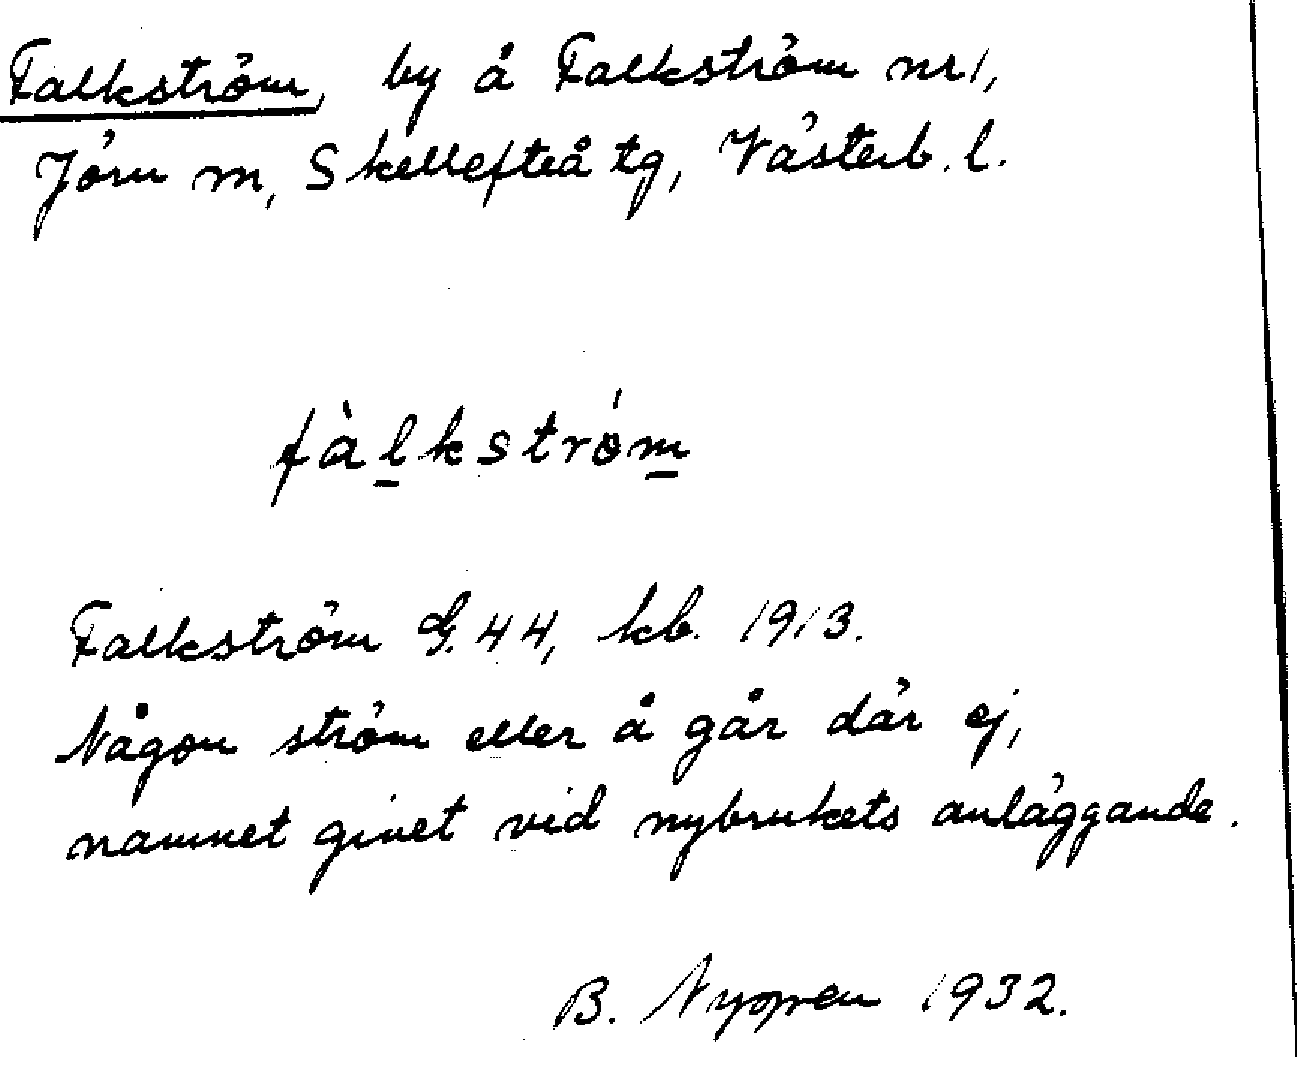 Falkström, by å Falkström nr 1,
Jörn sn, Skellefteå tg, Västerb. l.
fàl̲kstróm̲
Falkström G. 44, kb. 1913.
Någon ström eller å går där ej,
namnet givet vid nybrukets anläggande.
B. 1932.